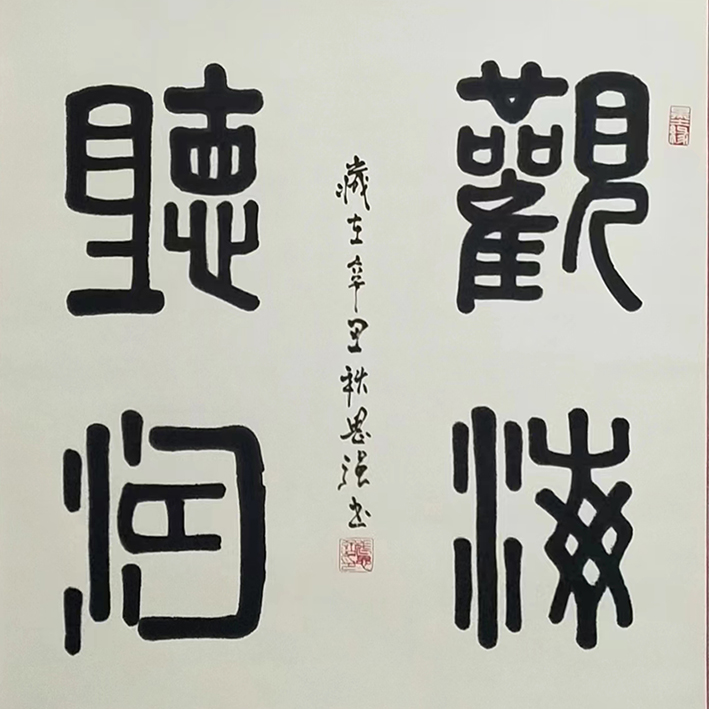 觀海
歲在辛丑秋思强書
聽